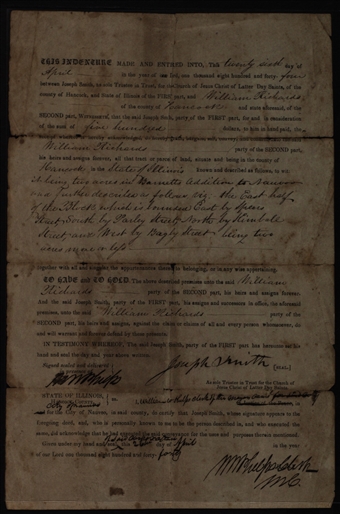 THIS INDENTURE MADE AND ENTRED INTO, This twenty second day of
April in the year of our Lord, one thousand eight hundred and forty-four
between Joseph Smith, as sole Trustee in Trust, for the Church of Jesus Christ of Latter Day Saints, of the
county of Hancock, and State of Illinois of the FIRST part, and William Richards
of the county of Hancock and state aforesaid, of the
SECOND part, Witnesseth, that the said Joseph Smith, party of the FIRST part, for and in consideration
of the sum of five hundred dollars, to him in hand paid, the
William Richards party of the SECOND part,
his heirs and assigns forever, all that tract or parcel of land, situate and being in the county of
Hancock in the State of Illinois Known and described as follows, to wit
being two acres in
further described as follows viz. the East half
of the Block which is bounded East by
Street South by Parley Street North by Kimball
Street, and West by Street being two
acres more or less
together with all and singular the appurtenances thereto belonging, or in any wise appertaining.
TO HAVE and TO HOLD. The above described premises unto the said William
Richards party of the SECOND part, his heirs and assigns forever.
And the said Joseph Smith, party of the FIRST part, his assigns and successors in office, the aforesaid
premises, unto the said William Richards party of the
SECOND part, his heirs and assigns, against the claim or claims of all and every person whomsoever, do
and will warrant and forever defend by these presents.
IN TESTIMONY WHEREOF, The said Joseph Smith, party of the FIRST part, has hereunto set his
hand and seal the day and year above written.
Signed sealed and delivered
Joseph Smith (SEAL)
W. W. Phelps
As sole Trustee in Trust for the Church of
Jesus Christ of Latter Day Saints.
STATE OF ILLINOIS,
for the City of Nauvoo, in said county, do certify that Joseph Smith, whose signature appears to the
foregoing deed, and who is personally known to me to be the person described in, and who executed the
same, did acknowledge that he had executed the said conveyance for the uses and purposes therein mentioned.
Given under my hand and April in the year
of our Lord one thousand eight hundred and forty-four
W. W. Phelps Clerk
M. C.